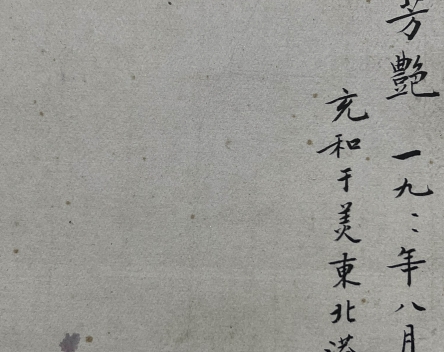 芳艷 一九〻年八月
充和于美東北